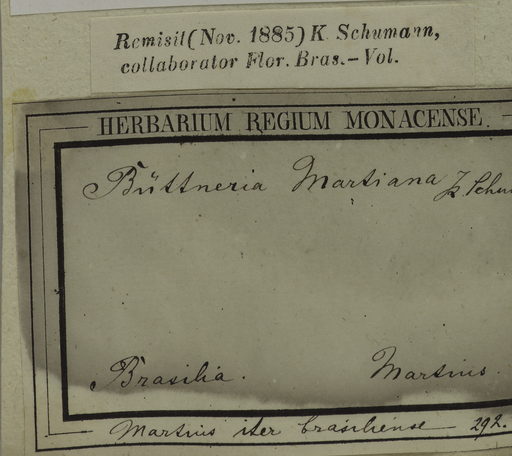 Remisit (Nov. 1885) K. Schumann,
collaborator Flor. Bras. – Vol.
HERBARIUM REGIUM MONACENSE.
Büttneria Martiana
Brasilia. Martius.
Martius iter brasiliense 292.